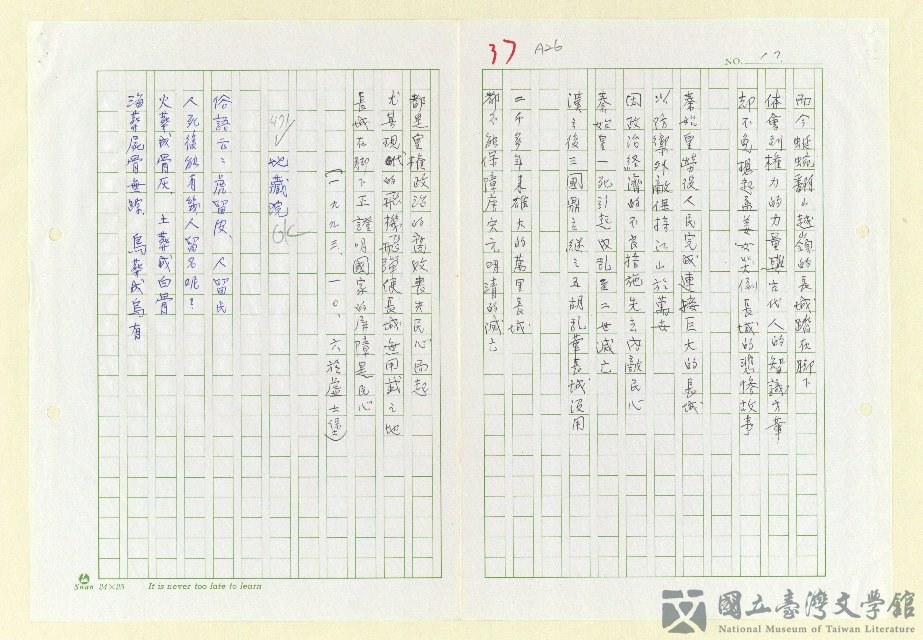 37 A26
NO. 17
而今蜿蜒翻山越嶺的長城踏在脚下
体會到權力的力量與古代人的智識才華
却不免想起孟姜女哭倒長城的悲慘故事
秦始皇勞役人民完成連接巨大的長城
以防禦外敵保持江山於萬世
因政治経濟的不良措施先去內敵民心
秦始皇一死引起叛乱至二世滅亡
漢之後三國鼎立継之五胡乱華長城没用
二千多年来雄大的萬里長城
都不能保障唐宋元明清的滅亡
都是皇權政治的腐敗喪失民心而起
尤其現代的飛機飛彈使長城無用武之地
長城在脚下正證明國家的屏障是民心
(一九九三、一〇、六於盧士堡)
471
地藏院
俗語云：虎留皮、人留氏
人死後能有幾人留名呢？
火葬成骨灰 土葬成白骨
海葬屍骨無踪 鳥葬成烏有
Swan 24×25 It is never too late to learn
國立臺灣文學館
National Museum of Taiwan Literature